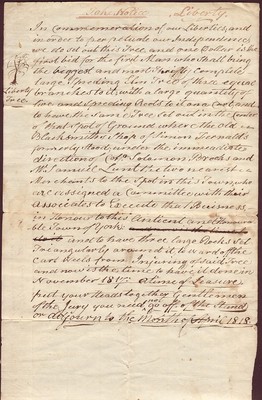 Liberty
In commemoration of our Liberties, and
in order to perpetuate our Independence
we do set out this Tree and one Dollar is the
first bid for the first Man who Shall bring
the biggest and most Complete
large Spreading Tree of that
branches to it, with a large quantity of
and Spreading Roots to it on a Cart and
to have the Same Tree Set out in the Center
of that Spot of Ground where the old
Blacksmiths Shop of
formerly Stood, under the immediate
direction of Solomon Brooks and
Samuel Lunt the two nearest
Merchants to the Spot in this Town who
are assigned a Committee with their
associates to Execute that Business
in Honour to this Antient and
Town of York
and to have three large Rocks Set
Triangularly around it to ward off the
Cart Wheels from Injuring of said Tree
and now is the time to have it done in
November 1817 a time of Leasure
put your Heads together Gentlemen
of the Jury you need not go off of the Stand
or adjourn to the Month of April 1818
Liberty
Tree